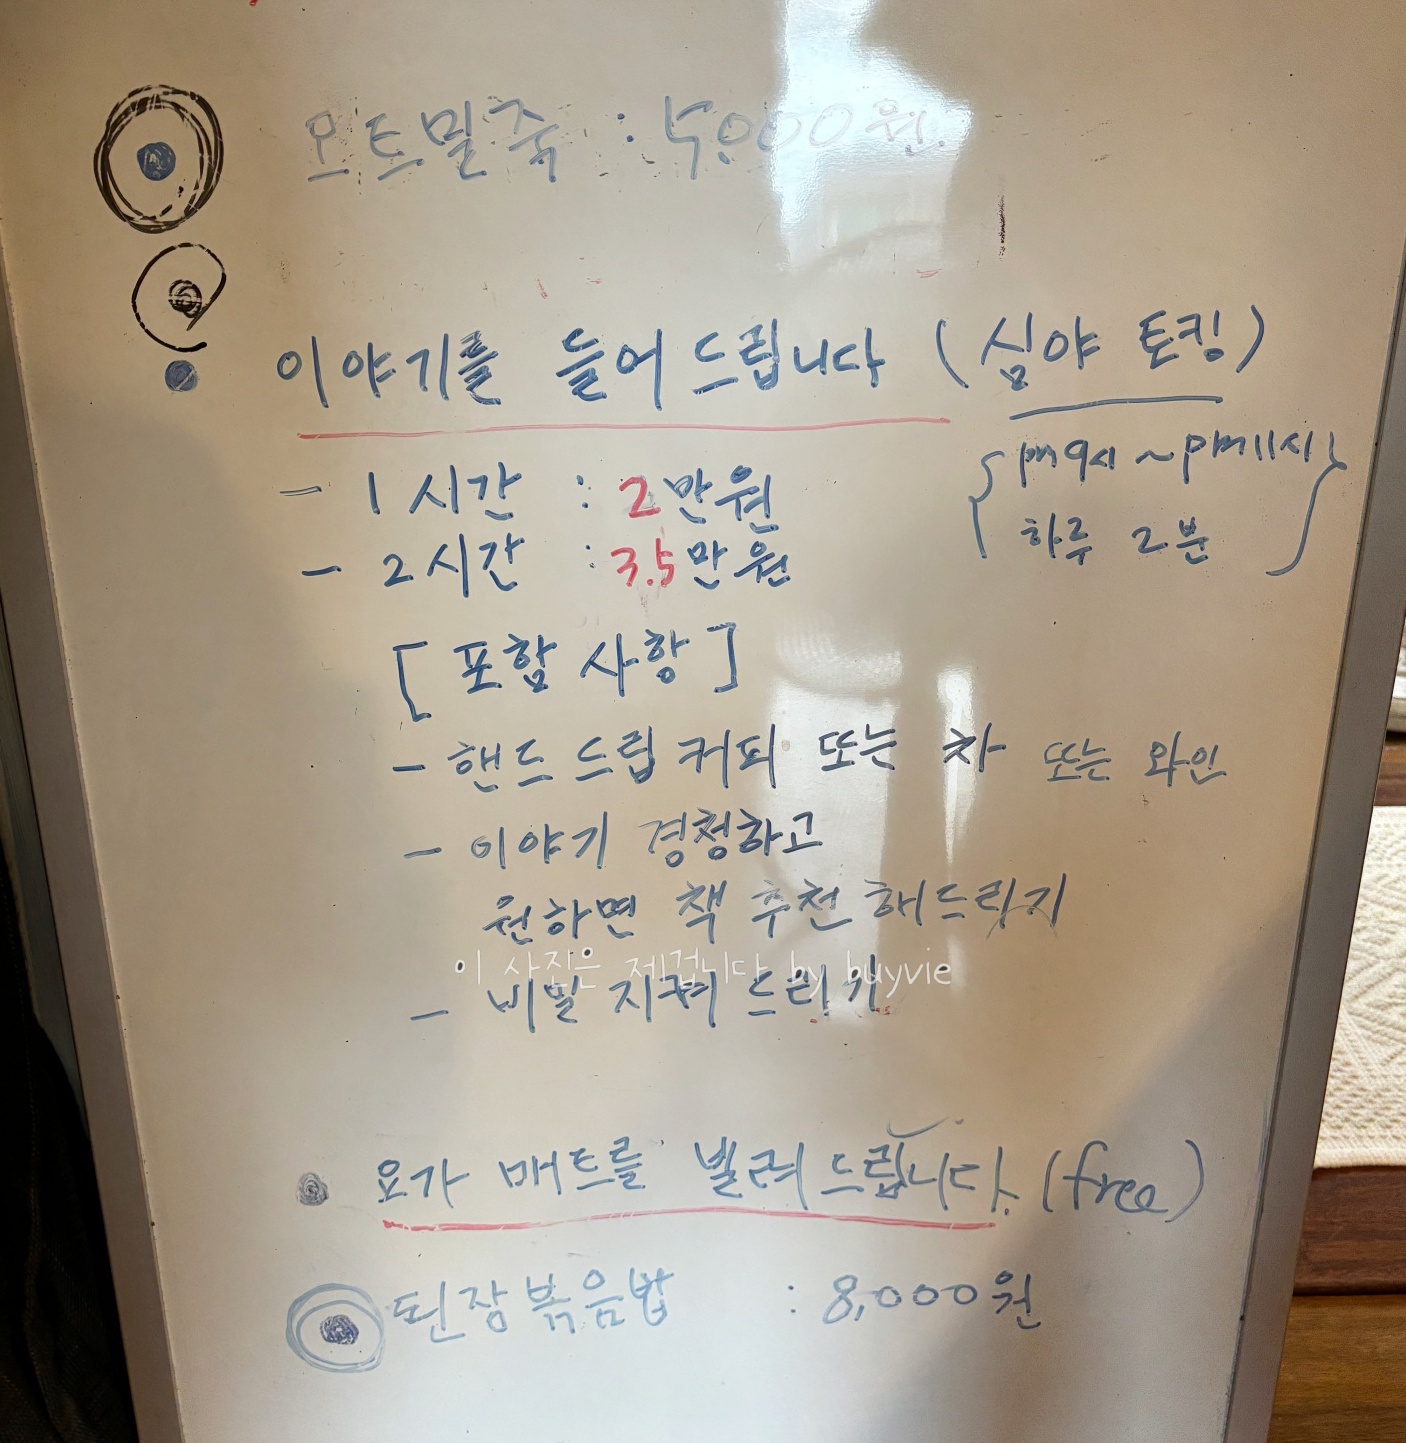 오트밀죽 : 5,000원
이야기를 들어드립니다 (심야 토킹)
{pm 9시 ~ pm 11시}
하루 2분
- 1시간 : 2만원
- 2시간 : 3.5만원
[포함 사항]
- 핸드 드립 커피 또는 차 또는 와인
- 이야기 경청하고
원하면 책 추천 해드리기
이 사진은 제겁니다 by buyvie
- 비밀 지켜 드리기
• 요가 매트를 빌려드립니다. (free)
된장볶음밥 : 8,000원